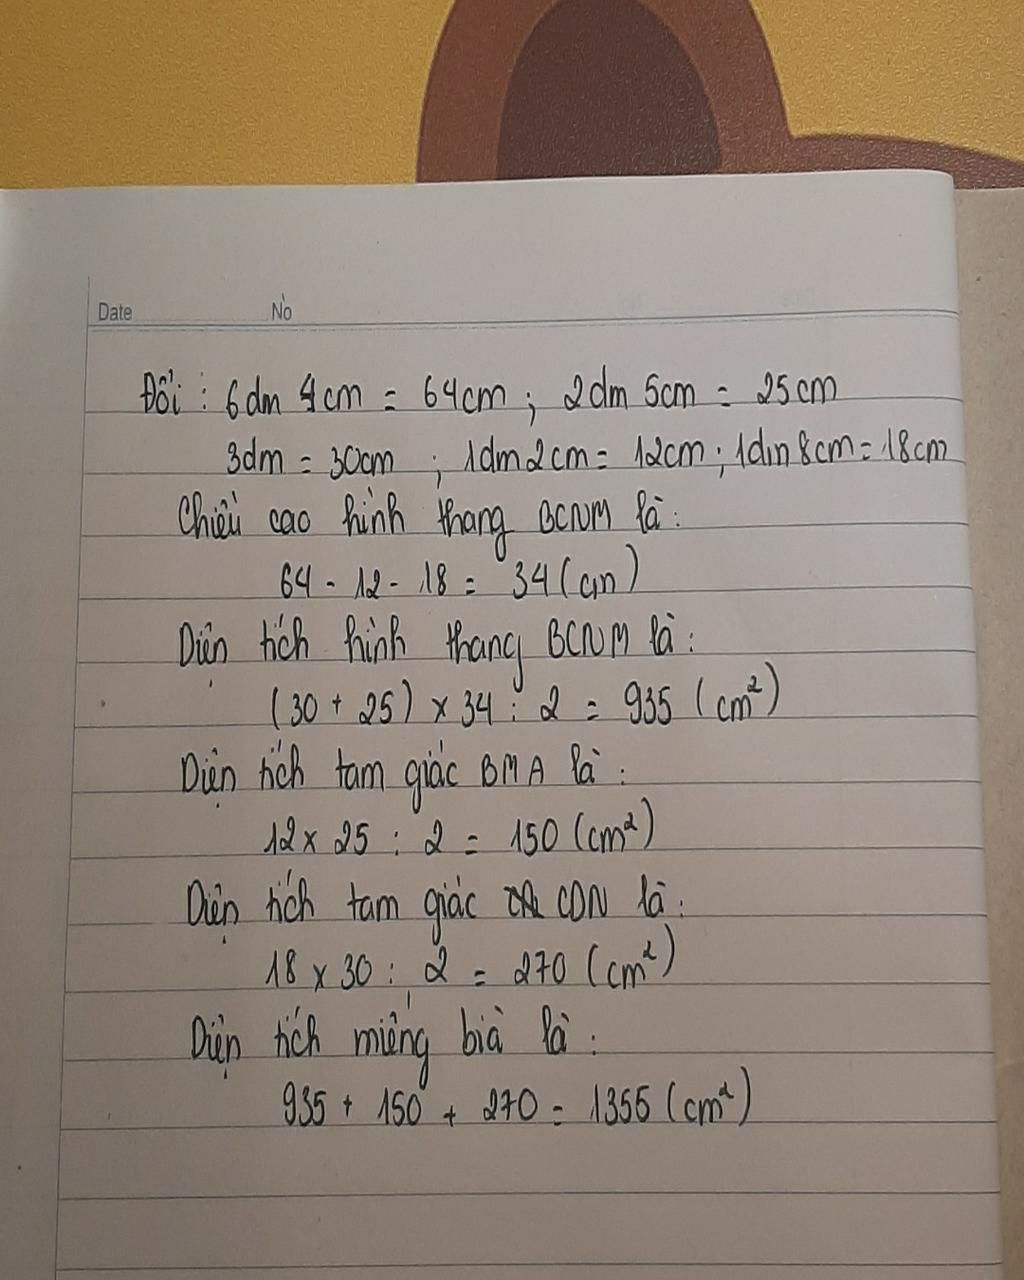 Date No
Đổi : 6dm 4cm = 64cm ; 2dm 5cm = 25cm
3dm = 30cm ; 1dm2cm = 12cm ; 1dm 8cm = 18cm
Chiều cao hình thang BCNM là :
64 - 12 - 18 = 34 (cm)
Diện tích hình thang BCNM là :
(30 + 25) x 34 : 2 = 935 (cm²)
Diện tích tam giác BMA là :
12 x 25 : 2 = 150 (cm²)
Diện tích tam giác CDN là :
18 x 30 : 2 = 270 (cm²)
Diện tích miếng bìa là :
935 + 150 + 270 = 1355 (cm²)